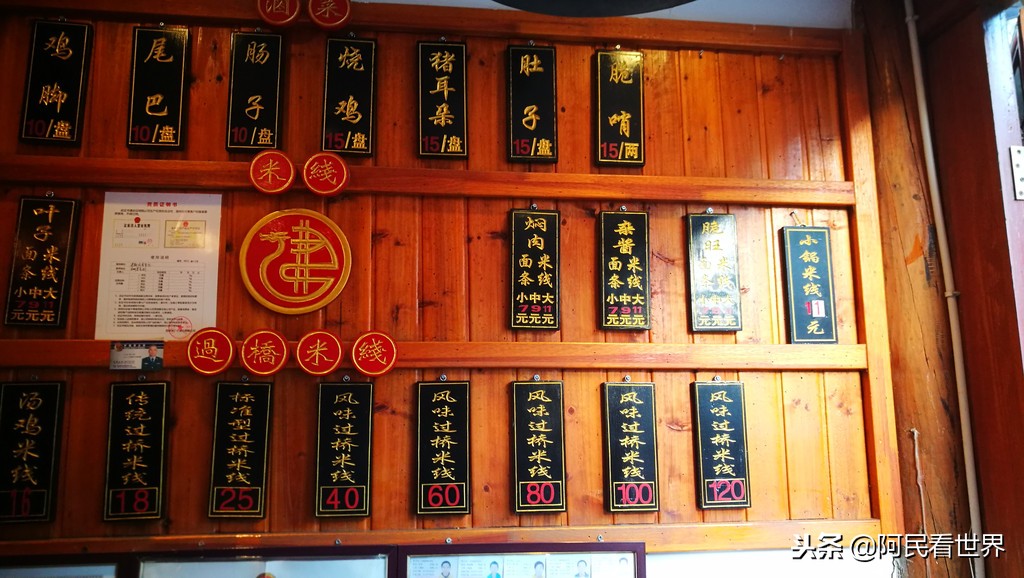 卤菜
鸡脚
10/盘
尾巴
10/盘
肠子
10/盘
烧鸡
15/盘
猪耳朵
15/盘
肚子
15/盘
脆哨
15/两
米綫
叶子
面条 米线
小中大
7 9 11
元元元
焖肉
面条 米线
小中大
7 9 11
元元元
杂酱
面条 米线
小中大
7 9 11
元元元
脆旺
面条 米线
小中大
7 9 11
元元元
小锅米线
11
元
過橋米綫
汤鸡米线
16
传统过桥米线
18
标准型过桥米线
25
风味过桥米线
40
风味过桥米线
60
风味过桥米线
80
风味过桥米线
100
风味过桥米线
120
头条 @阿民看世界